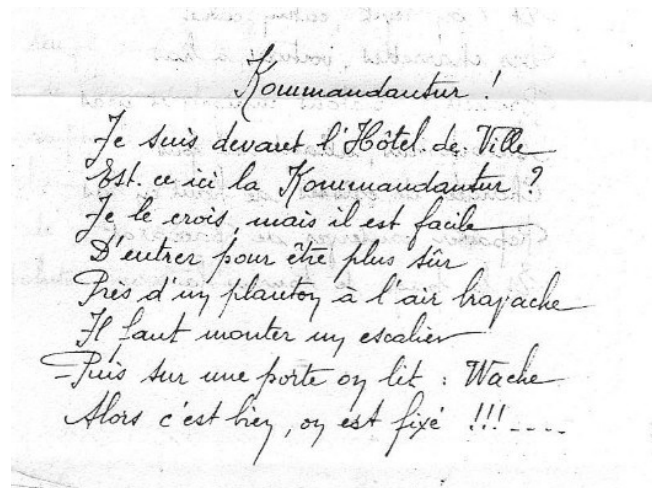 Kommandantur !
Je suis devant l'Hôtel. de. Ville
Est. ce ici la Kommandantur ?
Je le crois, mais il est facile
D'entrer pour être plus sûr
Près d'un planton à l'air bravache
Il faut monter un escalier
Puis sur une porte on lit : Wache
Alors c'est bien, on est fixé !!! ....